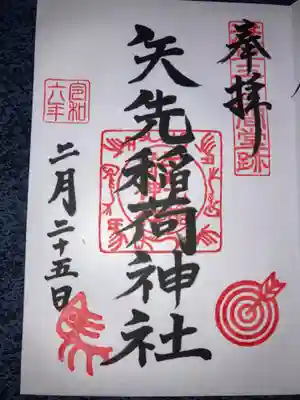 奉拝
矢先稲荷神社
令和
六年
二月二十五日
馬